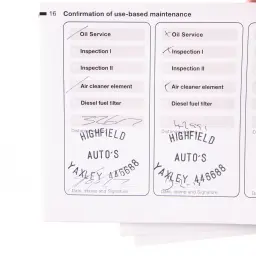 16 Confirmation of use-based maintenance
Oil Service
Inspection I
Inspection II
Air cleaner element
Diesel fuel filter
HIGHFIELD
AUTO'S
YAXLEY 445688
Date, Stamp and Signature
Oil Service
Inspection I
Inspection II
Air cleaner element
Diesel fuel filter
HIGHFIELD
AUTO'S
YAXLEY 445688
Date, Stamp and Signature